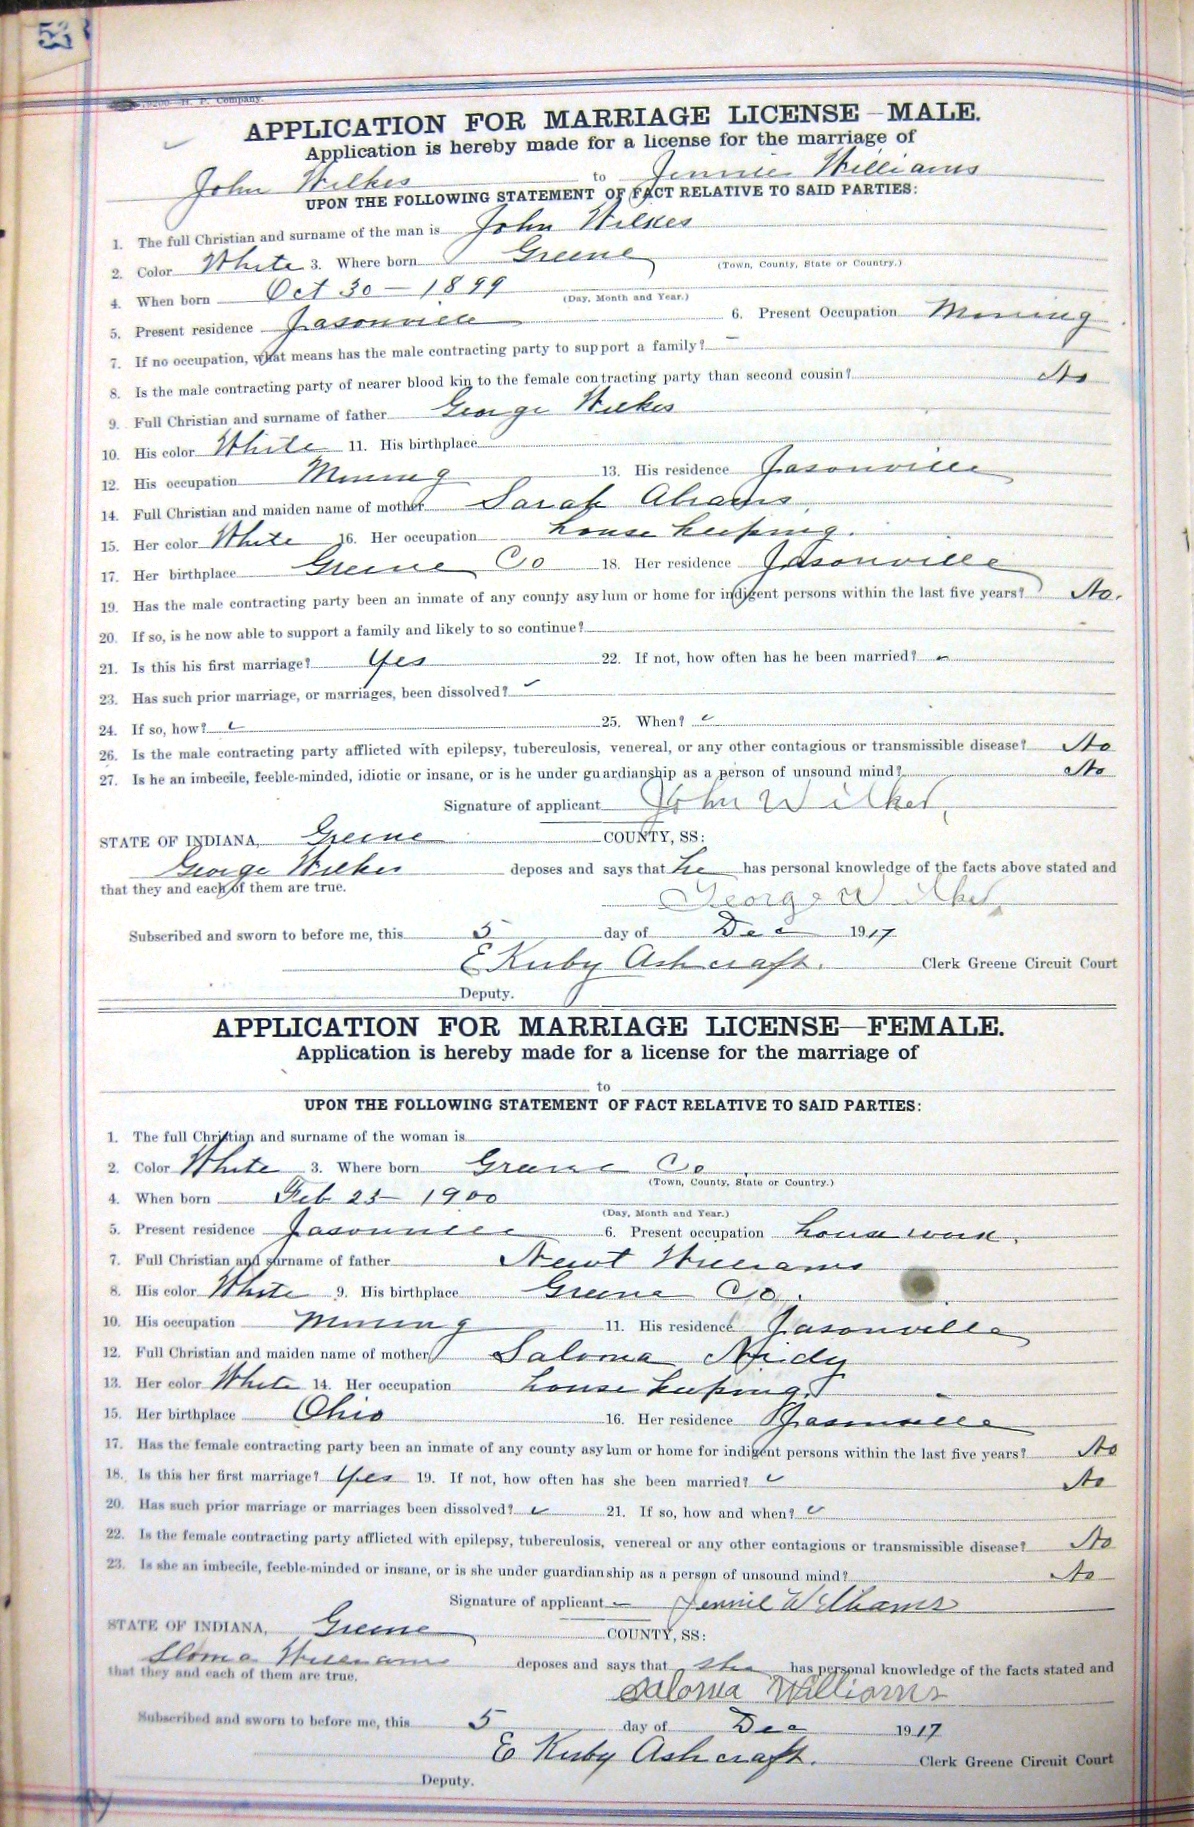 52
H. P. Company.
APPLICATION FOR MARRIAGE LICENSE—MALE.
Application is hereby made for a license for the marriage of
John Wilkes to Jennie Williams
UPON THE FOLLOWING STATEMENT OF FACT RELATIVE TO SAID PARTIES:
1. The full Christian and surname of the man is John Wilkes
2. Color White 3. Where born Greene
(Town, County, State or Country.)
4. When born Oct 30 — 1899
(Day, Month and Year.)
5. Present residence Jasonville 6. Present Occupation Mining
7. If no occupation, what means has the male contracting party to support a family? —
8. Is the male contracting party of nearer blood kin to the female contracting party than second cousin? No
9. Full Christian and surname of father George Wilkes
10. His color White 11. His birthplace
12. His occupation Mining 13. His residence Jasonville
14. Full Christian and maiden name of mother Sarah Abrams
15. Her color White 16. Her occupation house keeping.
17. Her birthplace Greene Co 18. Her residence Jasonville
19. Has the male contracting party been an inmate of any county asylum or home for indigent persons within the last five years? No.
20. If so, is he now able to support a family and likely to so continue?
21. Is this his first marriage? Yes 22. If not, how often has he been married?
23. Has such prior marriage, or marriages, been dissolved?
24. If so, how? 25. When?
26. Is the male contracting party afflicted with epilepsy, tuberculosis, venereal, or any other contagious or transmissible disease? No
27. Is he an imbecile, feeble-minded, idiotic or insane, or is he under guardianship as a person of unsound mind? No
Signature of applicant John Wilkes,
STATE OF INDIANA, Greene COUNTY, SS:
George Wilkes deposes and says that he has personal knowledge of the facts above stated and
that they and each of them are true.
George Wilkes
Subscribed and sworn to before me, this 5 day of Dec 1917
E Kirby Ashcraft. Clerk Greene Circuit Court
Deputy.
APPLICATION FOR MARRIAGE LICENSE—FEMALE.
Application is hereby made for a license for the marriage of
to
UPON THE FOLLOWING STATEMENT OF FACT RELATIVE TO SAID PARTIES:
1. The full Christian and surname of the woman is
2. Color White 3. Where born Greene Co.
(Town, County, State or Country.)
4. When born Feb 25 — 1900
(Day, Month and Year.)
5. Present residence Jasonville 6. Present occupation house work.
7. Full Christian and surname of father Newt Williams
8. His color White 9. His birthplace Greene Co.
10. His occupation Mining 11. His residence Jasonville
12. Full Christian and maiden name of mother Saloma Neidy
13. Her color White 14. Her occupation house keeping.
15. Her birthplace Ohio 16. Her residence Jasonville
17. Has the female contracting party been an inmate of any county asylum or home for indigent persons within the last five years? No
18. Is this her first marriage? Yes 19. If not, how often has she been married? No
20. Has such prior marriage or marriages been dissolved? 21. If so, how and when?
22. Is the female contracting party afflicted with epilepsy, tuberculosis, venereal or any other contagious or transmissible disease? No
23. Is she an imbecile, feeble-minded or insane, or is she under guardianship as a person of unsound mind? No
Signature of applicant Jennie Williams
STATE OF INDIANA, Greene COUNTY, SS:
Sloma Williams deposes and says that she has personal knowledge of the facts stated and
that they and each of them are true.
Saloma Williams
Subscribed and sworn to before me, this 5 day of Dec 1917
E Kirby Ashcraft. Clerk Greene Circuit Court
Deputy.